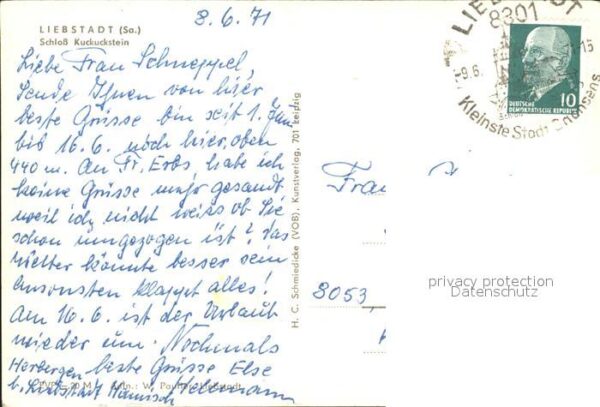 8.6.71
LIEBSTADT (Sa.)
Schloß Kuckuckstein
Liebe Frau Schneppel,
Sende Ihnen von hier
beste Grüsse bin seit 1. Juni
bis 16.6. noch hier, oben
440 m. An Fr. Erbs habe ich
keine Grüsse mehr gesandt
weil ich nicht weiss ob Sie
schon umgezogen ist? das
Wetter könnte besser sein
ansonsten klappt alles!
Am 16.6. ist der Urlaub
wieder um. Nochmals
beste Grüsse Else
Herbergen
b. Liebstadt
H. C. Schmiedicke (VOB), Kunstverlag, 701 Leipzig
Frau
8053
LIEBSTADT
8301
9.6.
15
Kleinste Stadt
DEUTSCHE
DEMOKRATISCHE REPUBLIK
10
privacy protection
Datenschutz